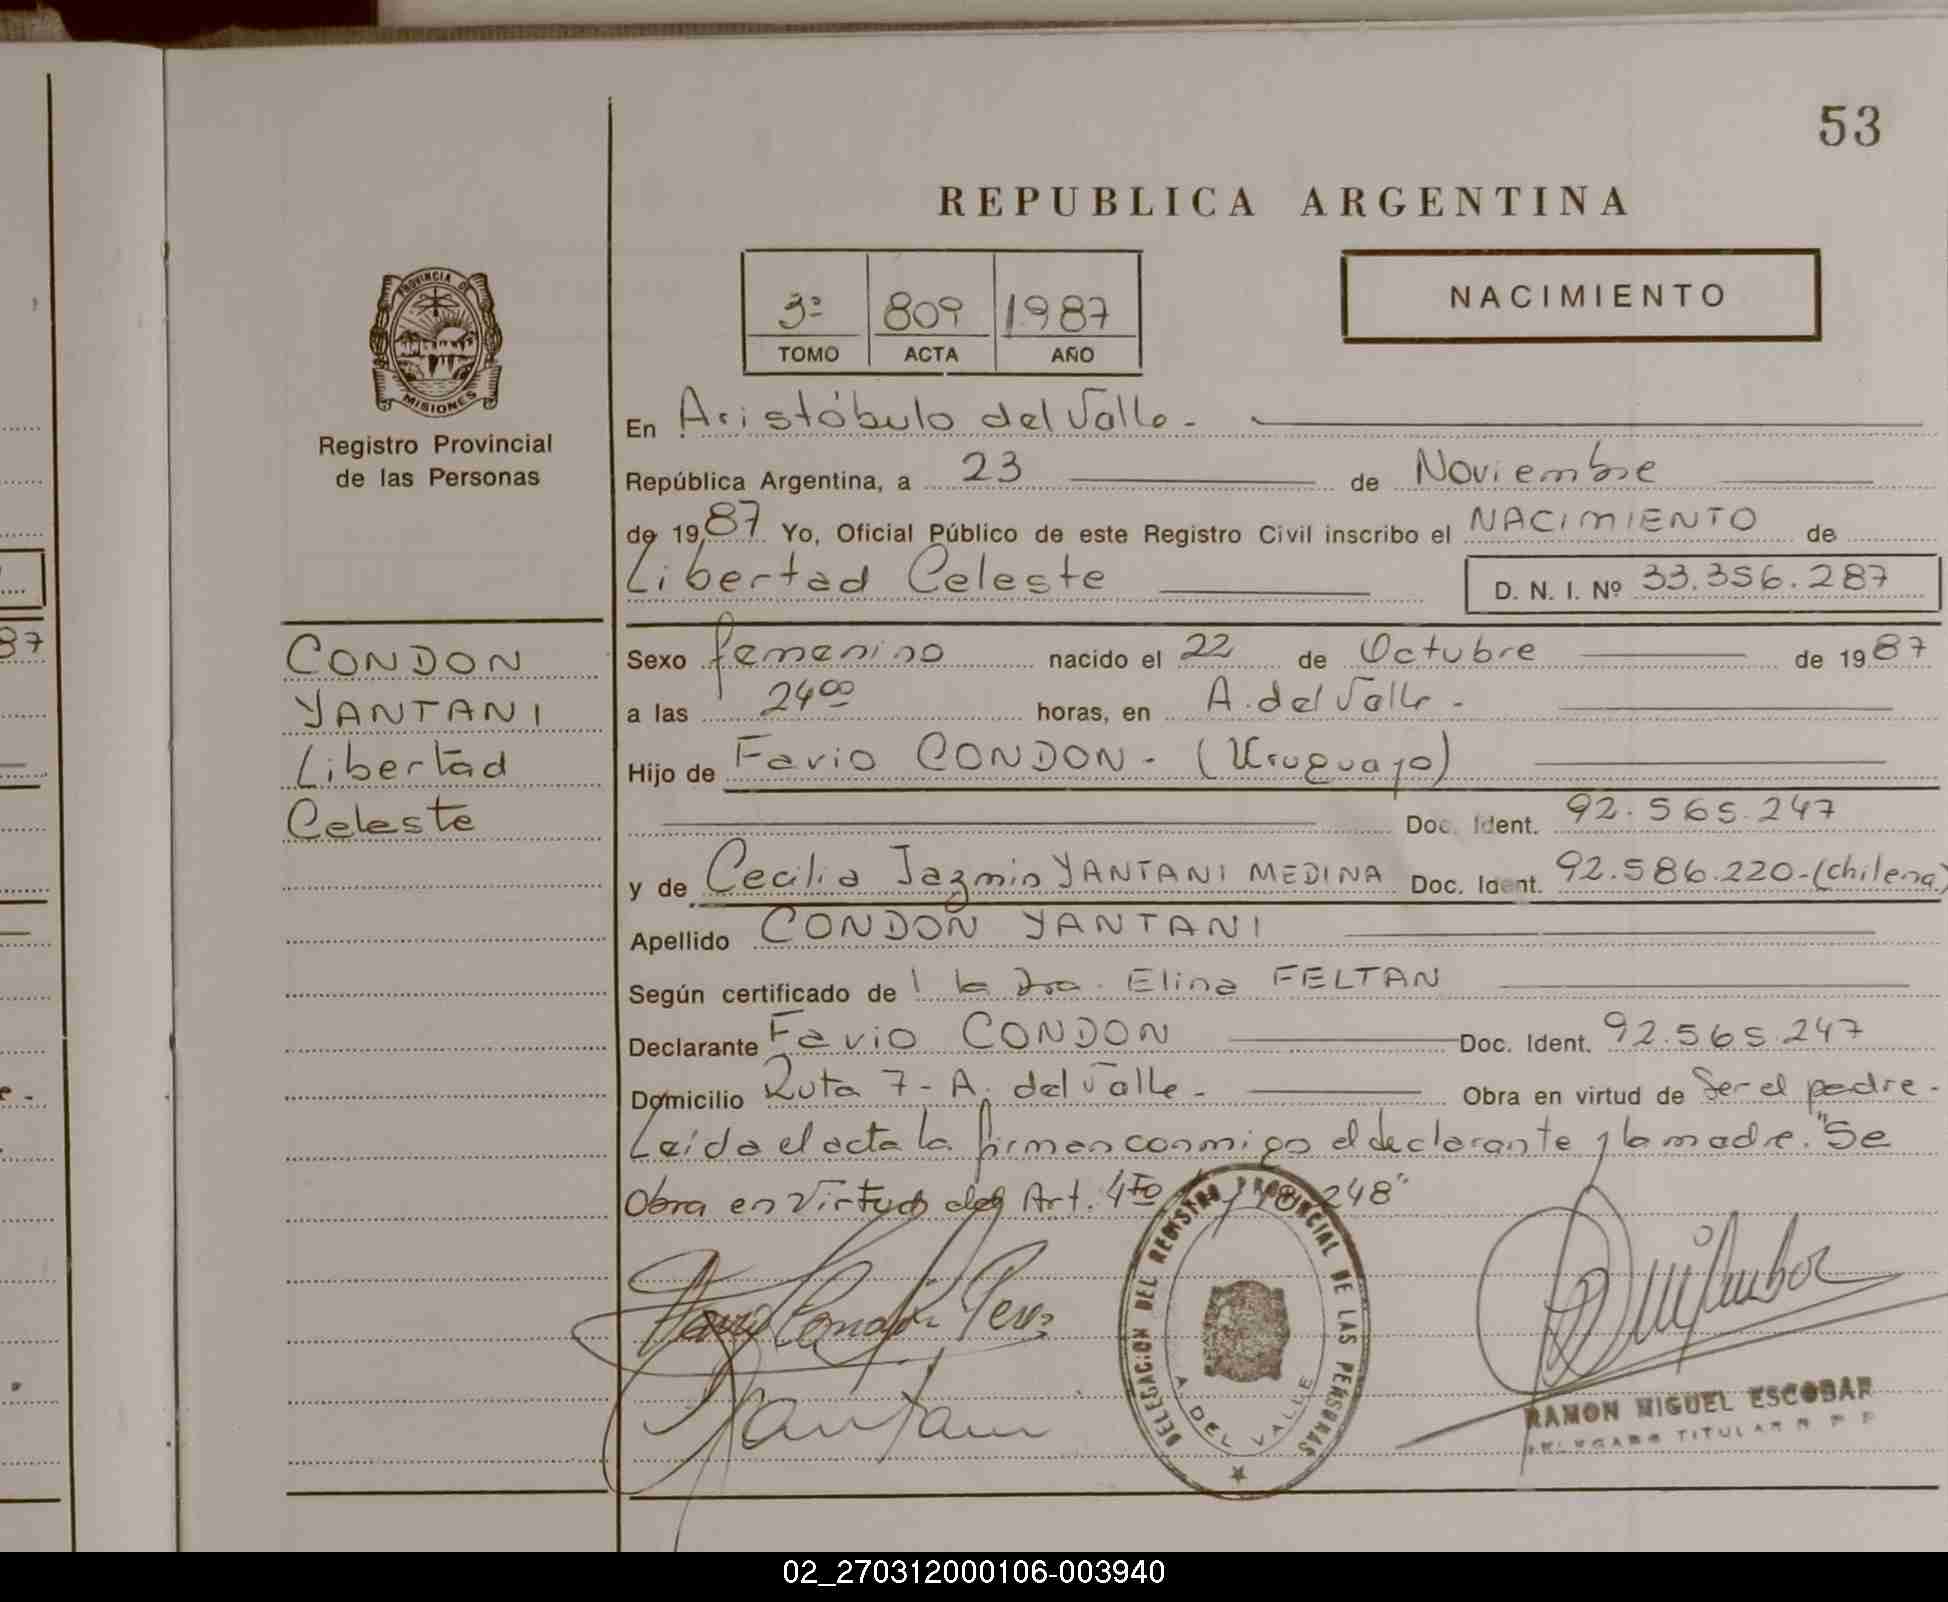 53
REPUBLICA ARGENTINA
3º 809 1987
TOMO ACTA AÑO
NACIMIENTO
PROVINCIA DE
MISIONES
Registro Provincial
de las Personas
En Aristóbulo del Valle.-
República Argentina, a 23 de Noviembre
de 1987 Yo, Oficial Público de este Registro Civil inscribo el NACIMIENTO de
Libertad Celeste D. N. I. Nº 33.356.287
87
CONDON
YANTANI
Libertad
Celeste
Sexo femenino nacido el 22 de Octubre de 1987
a las 24⁰⁰ horas, en A. del Valle.-
Hijo de Favio CONDON.- (Uruguayo)
Doc. Ident. 92.565.247
y de Cecilia Jazmin YANTANI MEDINA Doc. Ident. 92.586.220-(chilena)
Apellido CONDON YANTANI
Según certificado de la Dra. Elina FELTAN
Declarante Favio CONDON Doc. Ident. 92.565.247
Domicilio Ruta 7-A. del Valle.- Obra en virtud de Ser el padre.-
Leída el acta la firman conmigo el declarante y la madre. "Se
Obra en Virtud del Art. 4to 18.248"
DELEGACION DEL REGISTRO PROVINCIAL DE LAS PERSONAS
A DEL VALLE
Yantani
RAMON MIGUEL ESCOBAR
DELEGADO TITULAR R P P
02_270312000106-003940